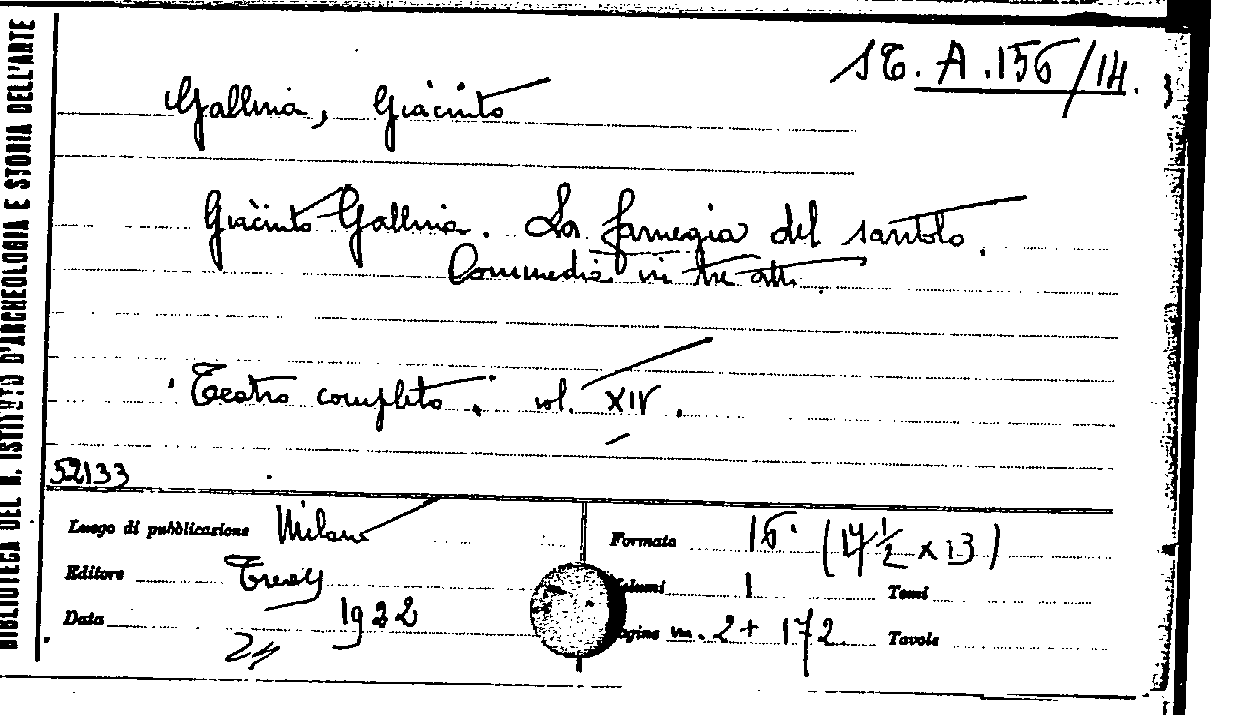 ST. A. 156/14.
Gallina, Giacinto
Giacinto Gallina. La famegia del santolo.
Commedia in tre atti.
Teatro completo. vol. XIV.
52133
Luogo di pubblicazione Milano
Formato 16° (17½ x 13)
Editore Treves
Volumi 1 Tomi
Data 1922
Pagine nn. 2 + 172. Tavole
BIBLIOTECA DEL R. ISTITUTO D'ARCHEOLOGIA E STORIA DELL'ARTE